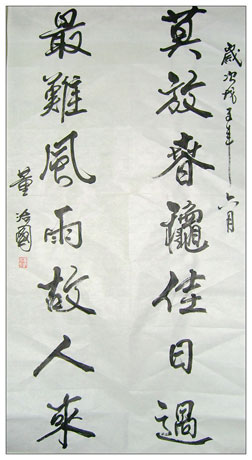 歲次戊子年六月
莫放春龝佳日過
最難風雨故人來
董治國